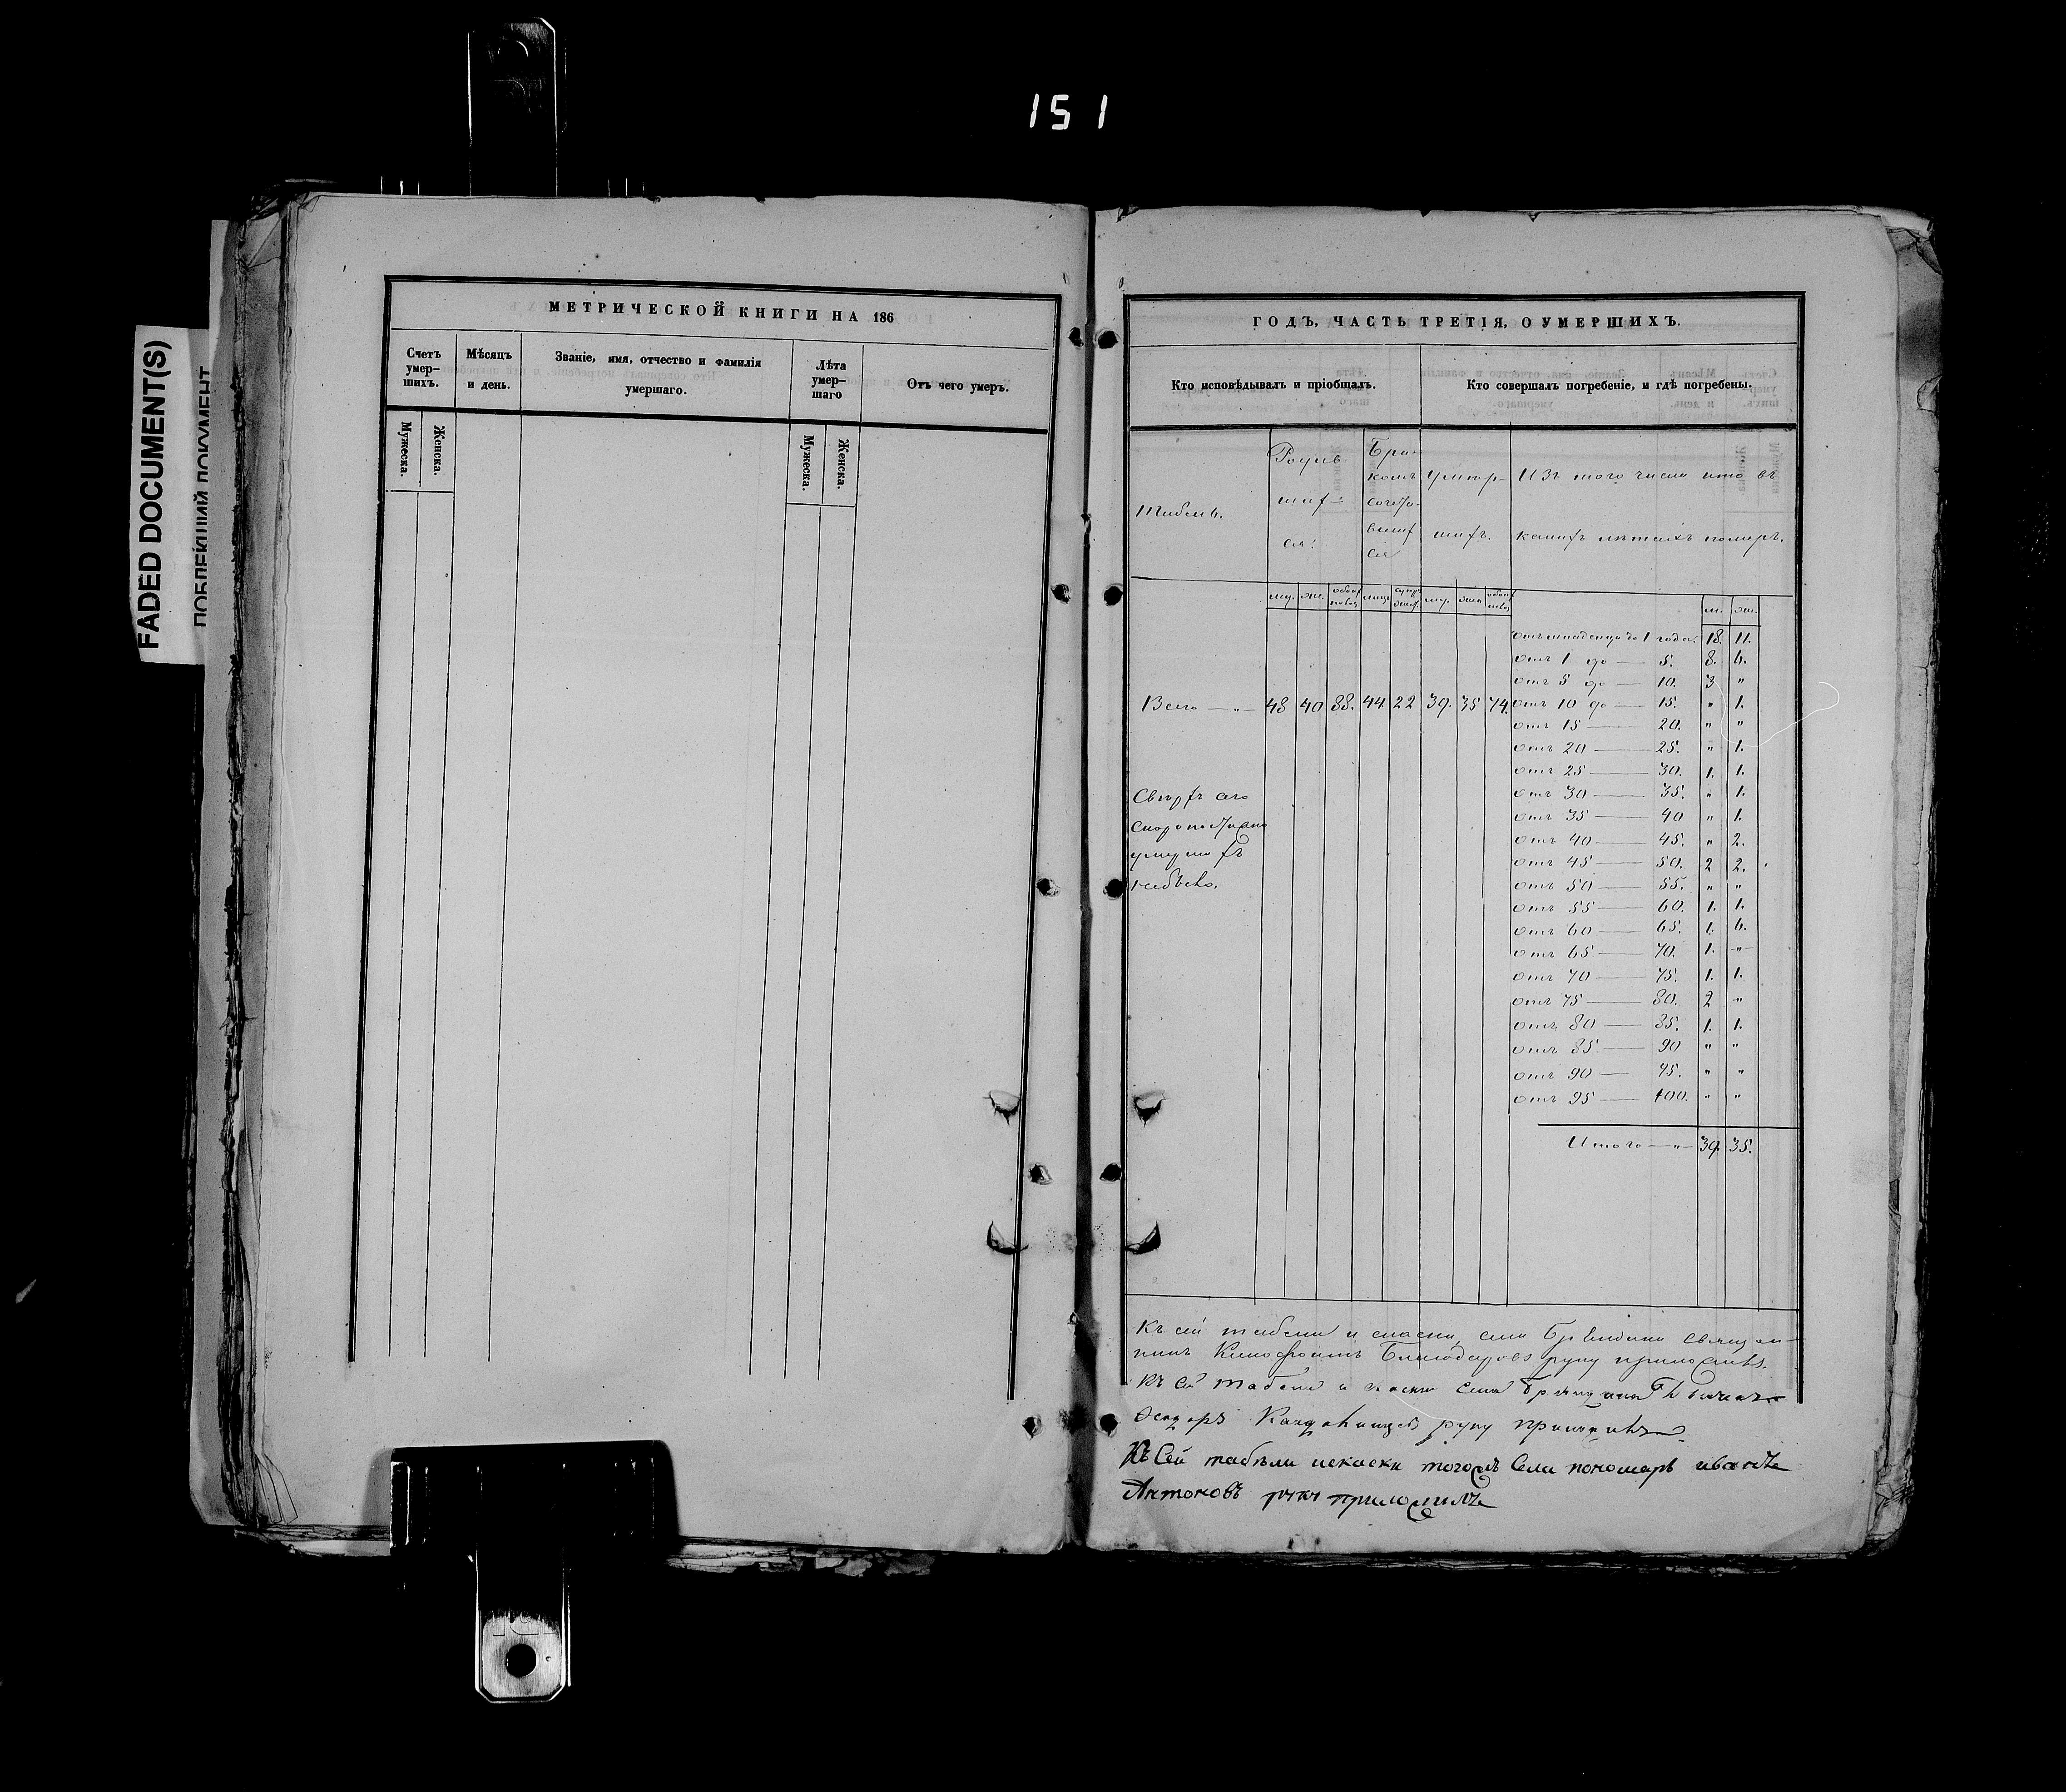 151
FADED DOCUMENT(S)
ПОБЛЕКШИЙ ДОКУМЕНТ
МЕТРИЧЕСКОЙ КНИГИ НА 186
Счетъ умер-шихъ.
Мѣсяцъ и день.
Званіе, имя, отчество и фамилія умершаго.
Лѣта умер-шаго
Отъ чего умеръ.
Мужеска.
Женска.
Мужеска.
Женска.
ГОДЪ, ЧАСТЬ ТРЕТІЯ, О УМЕРШИХЪ.
Кто исповѣдывалъ и пріобщалъ.
Кто совершалъ погребеніе, и гдѣ погребены.
Табель.
Родив
ших
ся:
Бра-
комъ
сочета-
вших
ся
Умер-
шихъ.
Изъ того числа кто въ
какихъ лѣтахъ померъ.
м. ж.
отъ младенца до 1 года. 18. 11.
отъ 1 до — 5. 8. 6.
отъ 5 до — 10. 3 "
Всего — " — 48 40 88. 44 22 39. 35 74. отъ 10 до — 15. " 1.
отъ 15 — 20. " "
отъ 20 — 25. " 1.
отъ 25 — 30. 1. 1.
отъ 30 — 35. " 1.
отъ 35 — 40 " 1.
отъ 40 — 45. " 2.
отъ 45 — 50. 2 2.
отъ 50 — 55. " "
отъ 55 — 60. 1. 1.
отъ 60 — 65. 1. 6.
отъ 65 — 70. 1. "
отъ 70 — 75. 1. 1.
отъ 75 — 80. 2 "
отъ 80 — 85. 1. 1.
отъ 85. — 90 " "
отъ 90 — 95. " "
отъ 95 — 100. " "
Итого — " — 39. 35.
Сверхъ сего
скоропостижно
умершихъ
небыло.
Къ сей табели и села священ-
никъ руку приложилъ.
Къ сей табели и села
руку приложилъ
Къ Сей табѣли искаски тогожъ Села пономарь иванъ
Антоновъ руку приложилъ